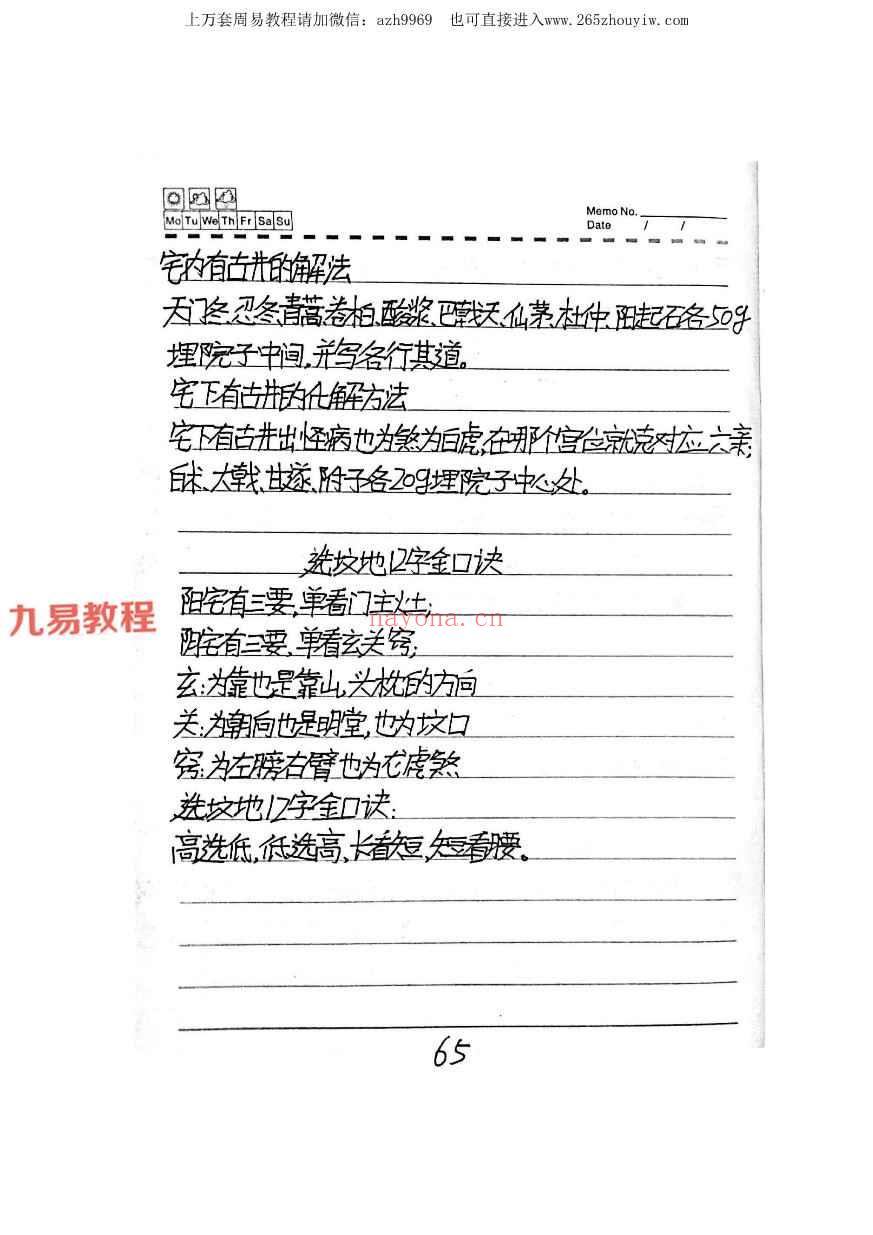 上万套周易教程请加微信: azh9969 也可直接进入www.265zhouyiw.com
Mo Tu We Th Fr Sa Su
Memo No.
Date / /
宅内有古井的解法
天门冬、忍冬、青蒿、卷柏、酸浆、巴戟天、仙茅、杜仲、阳起石各50g
埋院子中间,并写各行其道。
宅下有古井的化解方法
宅下有古井出怪病也为煞为白虎,在哪个宫位就克对应六亲;
白术、大戟、甘遂、附子各20g埋院子中心处。
选坟地12字金口诀
阳宅有三要,单看门主灶;
阴宅有三要,单看玄关窍;
玄:为靠也是靠山,头枕的方向
关:为朝向也是明堂,也为坟口
窍:为左膀右臂也为龙虎煞
选坟地12字金口诀:
高选低,低选高、长看短,短看腰。
九易教程
nayona.cn
65